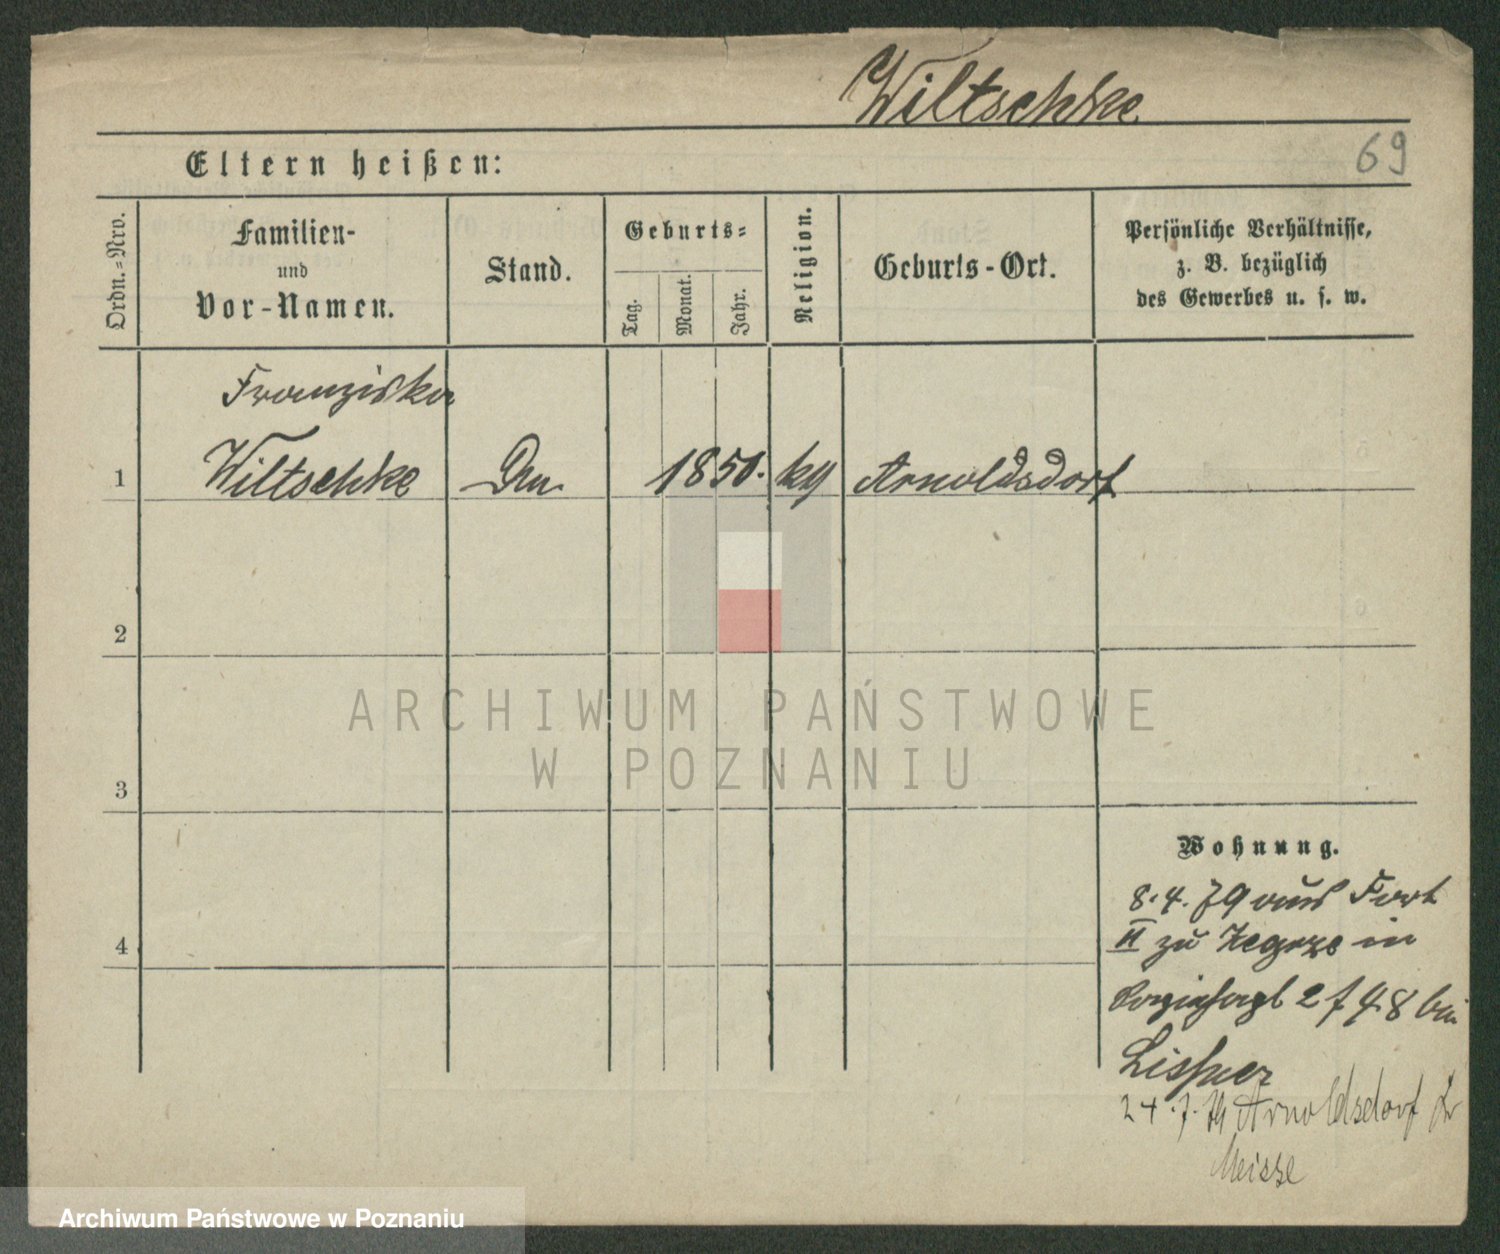 Wiltschke
69
Eltern heißen:
Ordn.-Nro.
Familien-
und
Vor-Namen.
Stand.
Geburts-
Tag.
Monat.
Jahr.
Religion.
Geburts-Ort.
Persönliche Verhältnisse,
z. B. bezüglich
des Gewerbes u. s. w.
Franziska
1 Wiltschke 1850. Arnoldsdorf
2
3
4
ARCHIWUM PAŃSTWOWE
W POZNANIU
Wohnung.
8.4.79 aus Fort
II zu Zegrze in
2
Lissner
24.7.79 Arnoldsdorf Kr
Neisse
Archiwum Państwowe w Poznaniu